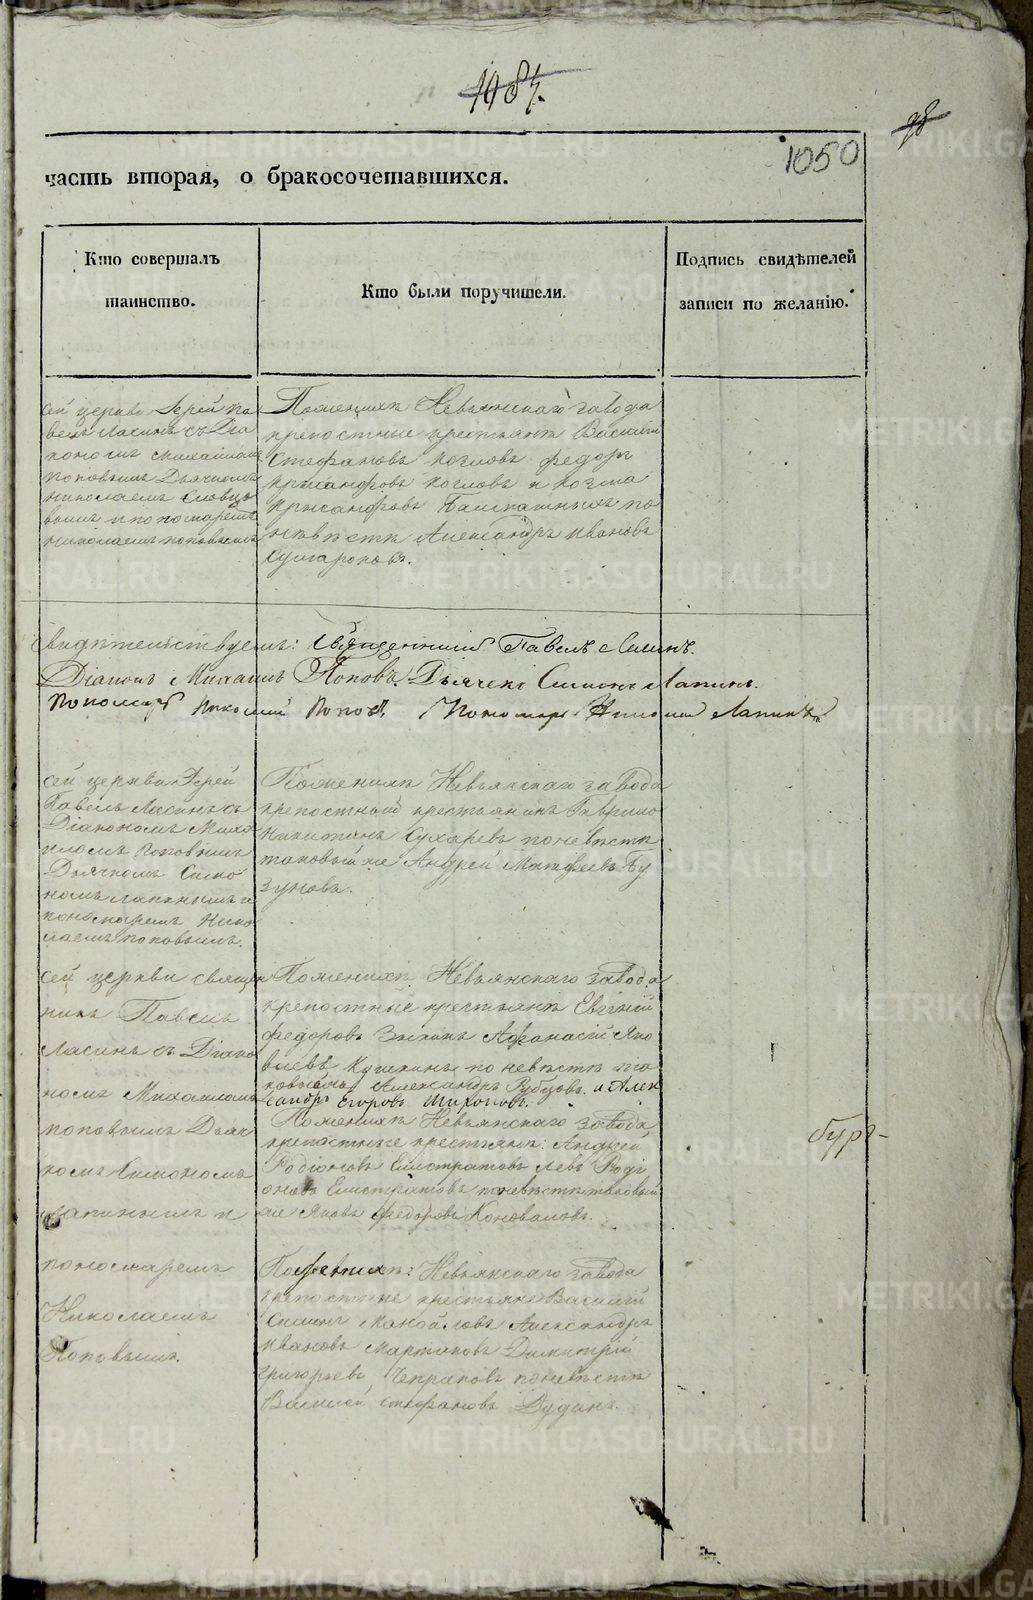 1084.
98
1050
часть вторая, о бракосочетавшихся.
Кто совершалъ
таинство.
Кто были поручители.
Подпись свидѣтелей
записи по желанію.
сей церкви Іерей Па
велъ Ласинъ съ Діа
кономъ Михаиломъ
Поповымъ Дьячкомъ
Николаемъ Словцо
вымъ и пономаремъ
Николаемъ Поповымъ
По женихѣ Невьянскаго завода
крепостные крестьяне Василій
Стефановъ Козловъ Федоръ
Козловъ и Козма
по
невѣстѣ Александръ Ивановъ
Сумароковъ.
Свидѣтельствуемъ: Священникъ Павелъ Ласинъ.
Діаконъ Михаилъ Поповъ. Дьячекъ Симонъ Лапинъ.
Пономарь Николай Поповъ, Пономарь Лапинъ
сей церкви Іерей
Павелъ Ласинъ съ
Діакономъ Миха
иломъ Поповымъ
Дьячкомъ Симо
номъ Лапинымъ и
пономаремъ Нико
лаемъ Поповымъ.
По женихѣ Невьянскаго завода
крепостный крестьянинъ Гаврило
Никитинъ Сухаревъ по невѣстѣ
таковый же Андрей Матфеевъ Бу
зуновъ.
сей церкви священ
никъ Павелъ
Ласинъ съ Діако
номъ Михаиломъ
Поповымъ Дьяч
комъ Симономъ
Лапинымъ и
пономаремъ
Николаемъ
Поповымъ.
По женихѣ Невьянскаго завода
крепостные крестьяне Евгений
Федоровъ Зыкинъ Афанасій Яко
влевъ Кушкинъ по невѣстѣ та
ковые же Александръ Рубцовъ и Алек
сандръ Егоровъ Широковъ.
По женихѣ Невьянскаго завода
крепостные крестьяне: Андрей
Родіоновъ Елистратовъ Левъ Роді
оновъ Елистратовъ по невѣстѣ таковый
же Яковъ Федоровъ Коноваловъ.
По женихѣ: Невьянскаго завода
крепостные крестьяне Василій
Симинъ Манойловъ Александръ
Ивановъ Мартьяновъ Димитрій
Григорьевъ по невѣстѣ
Василий Стефановъ Дудинъ.
METRIKI.GASO-URAL.RU